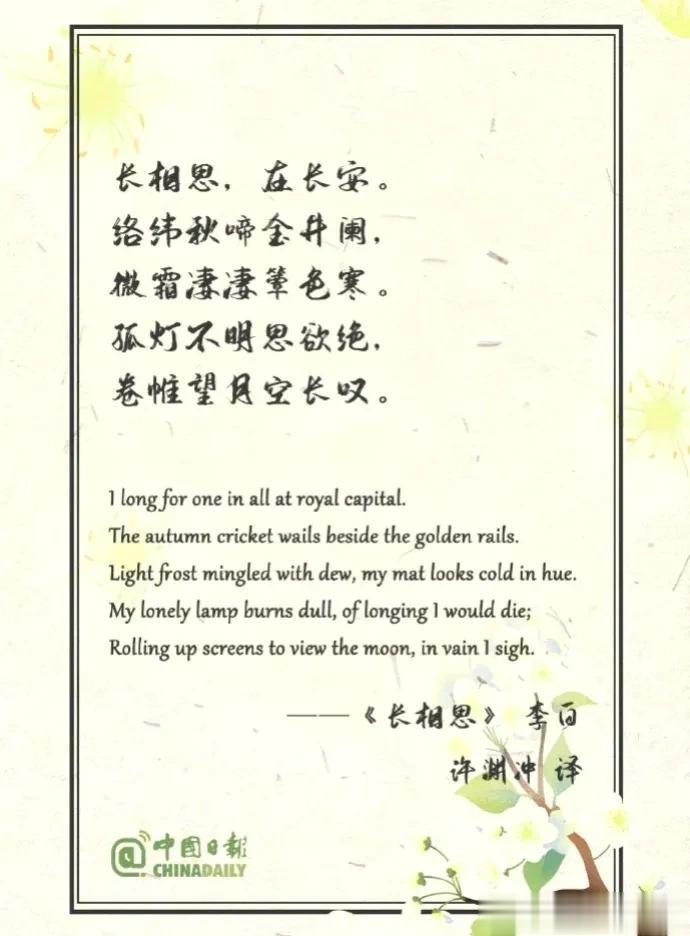 长相思，在长安。
络纬秋啼金井阑，
微霜凄凄簟色寒。
孤灯不明思欲绝，
卷帷望月空长叹。
I long for one in all at royal capital.
The autumn cricket wails beside the golden rails.
Light frost mingled with dew, my mat looks cold in hue.
My lonely lamp burns dull, of longing I would die;
Rolling up screens to view the moon, in vain I sigh.
——《长相思》 李白
许渊冲 译
@中国日报
CHINADAILY